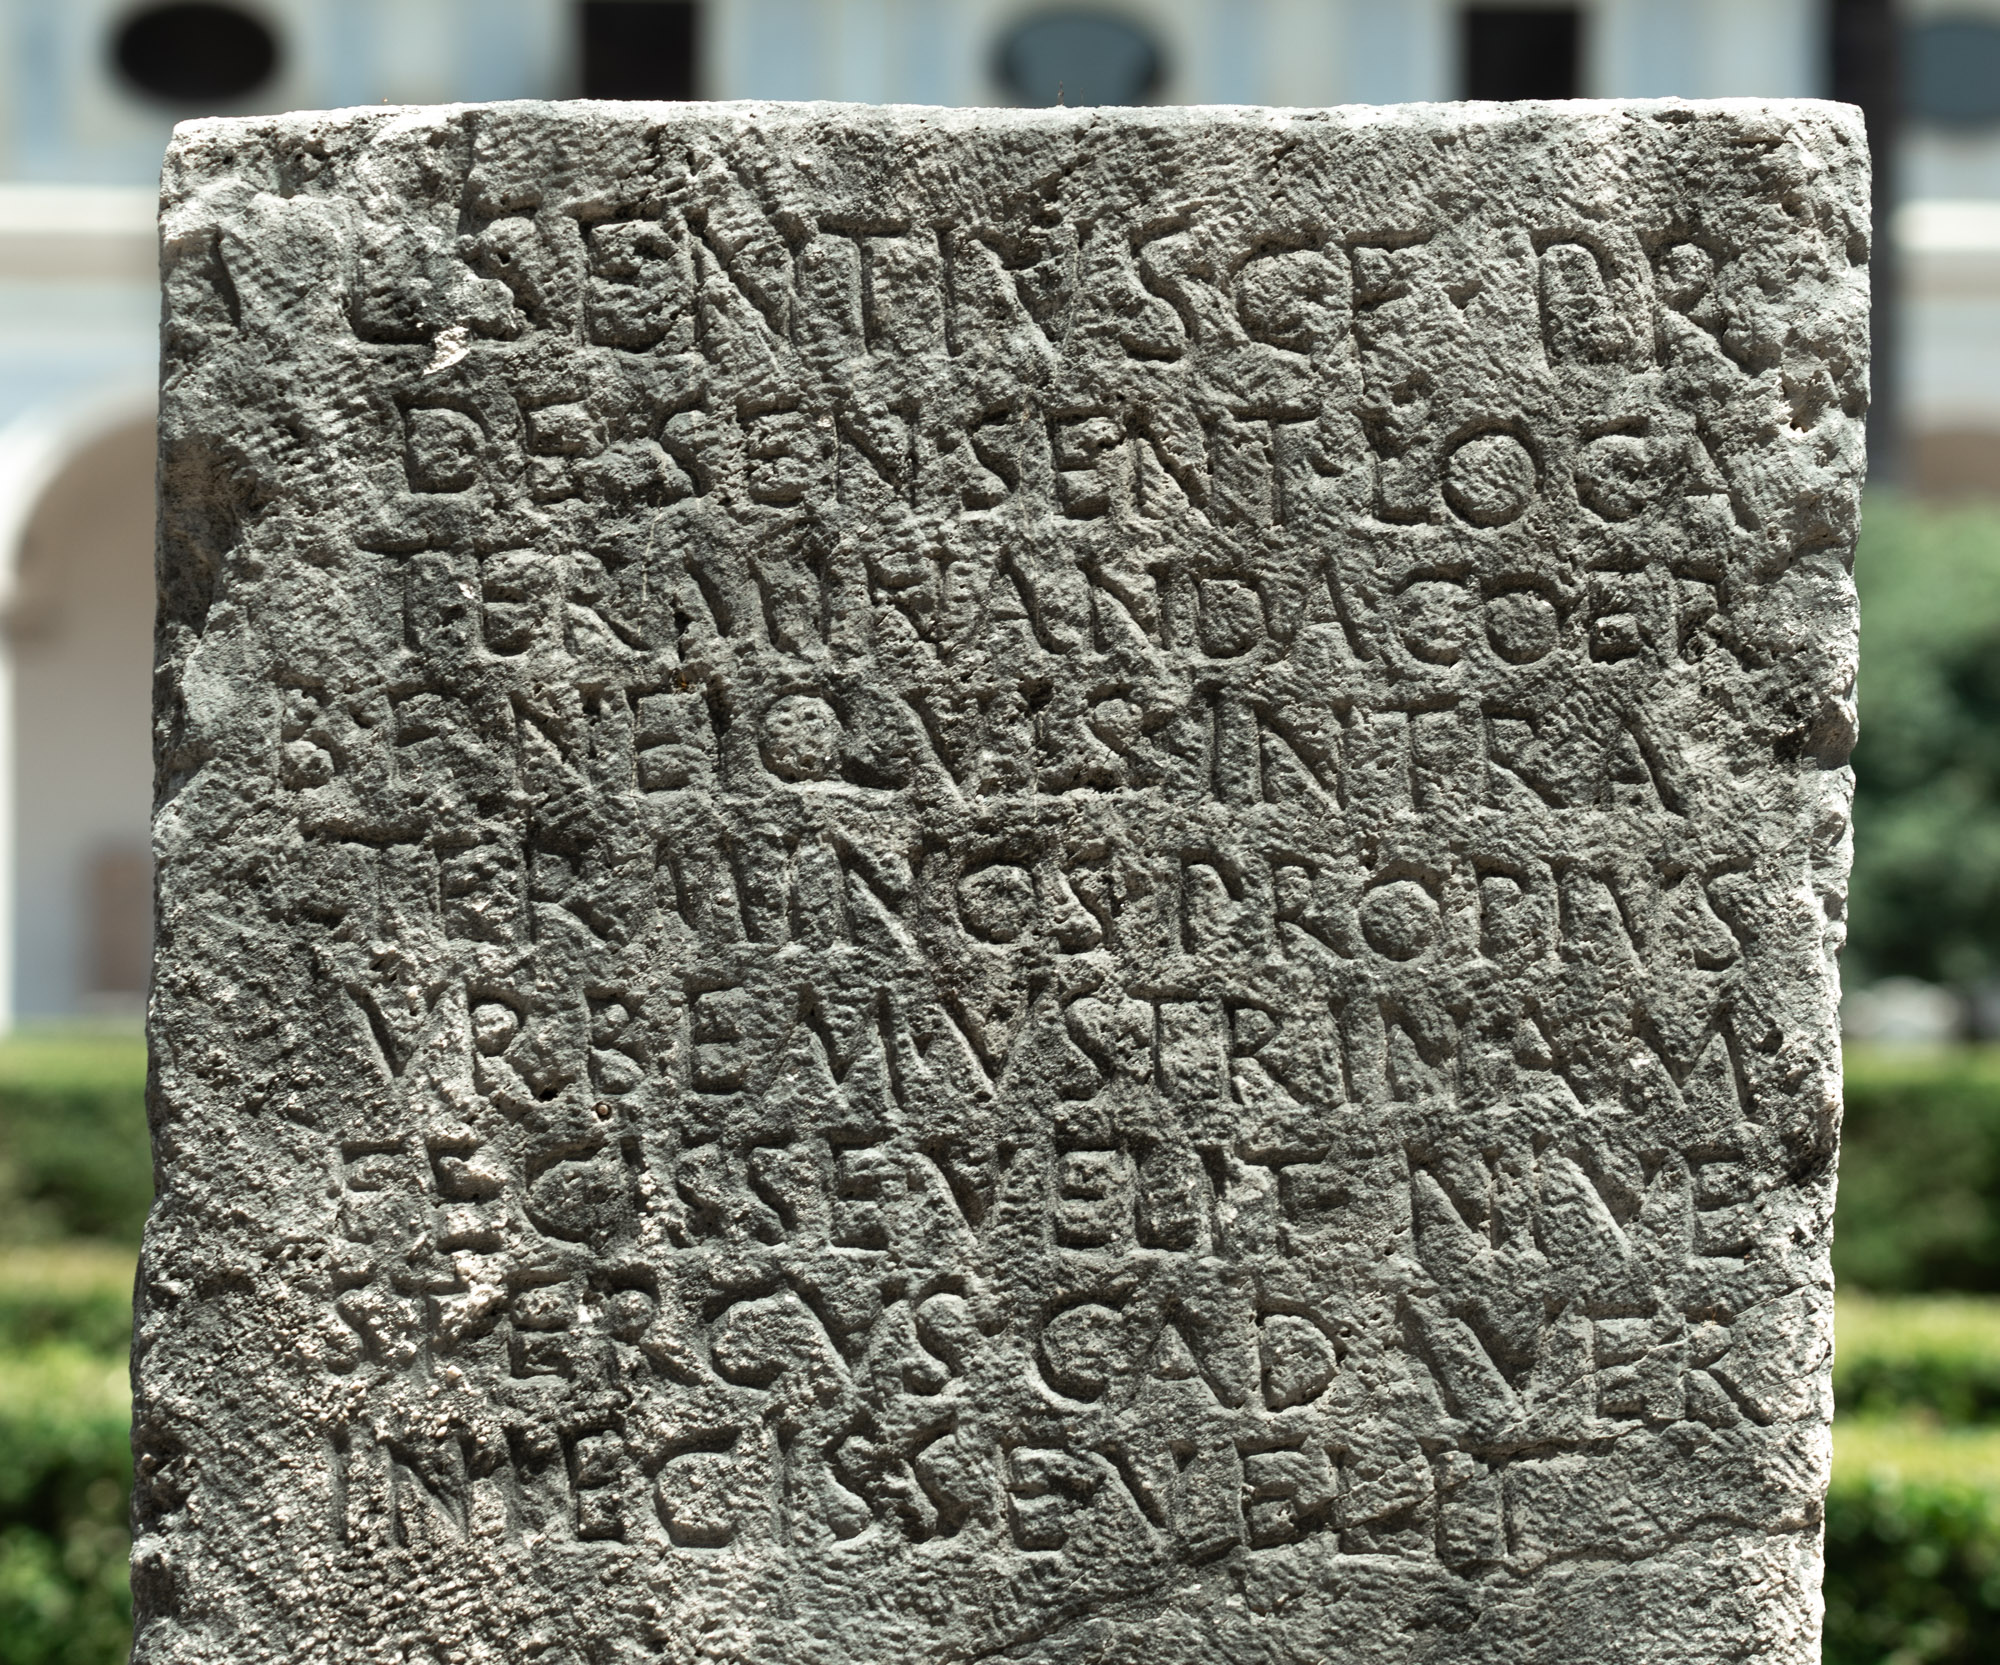 L SENTIVS C F PR
DE SEN SENT LOCA
TERMINANDA COER
BENE QVIS INTRA
TERMINOS PROPIVS
VRBEM VSTRINAM
FECISSE VELIT NIVE
STERCVS CADAVER
INIECISSE VELIT